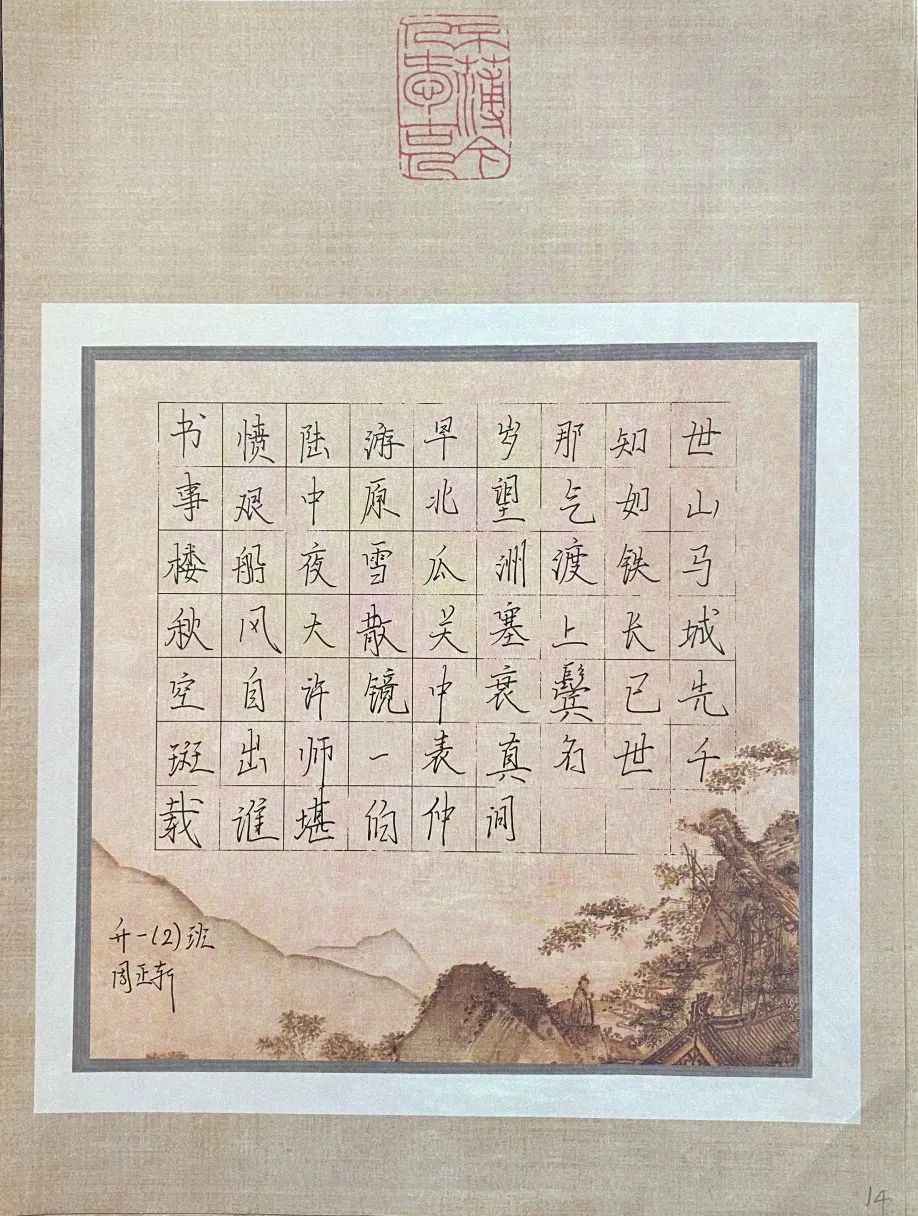 不薄今
人爱古人
书愤陆游早岁那知世
事艰中原北望气如山
楼船夜雪瓜洲渡铁马
秋风大散关塞上长城
空自许镜中衰鬓已先
斑出师一表真名世千
载谁堪伯仲间
升一(2)班
周正
14